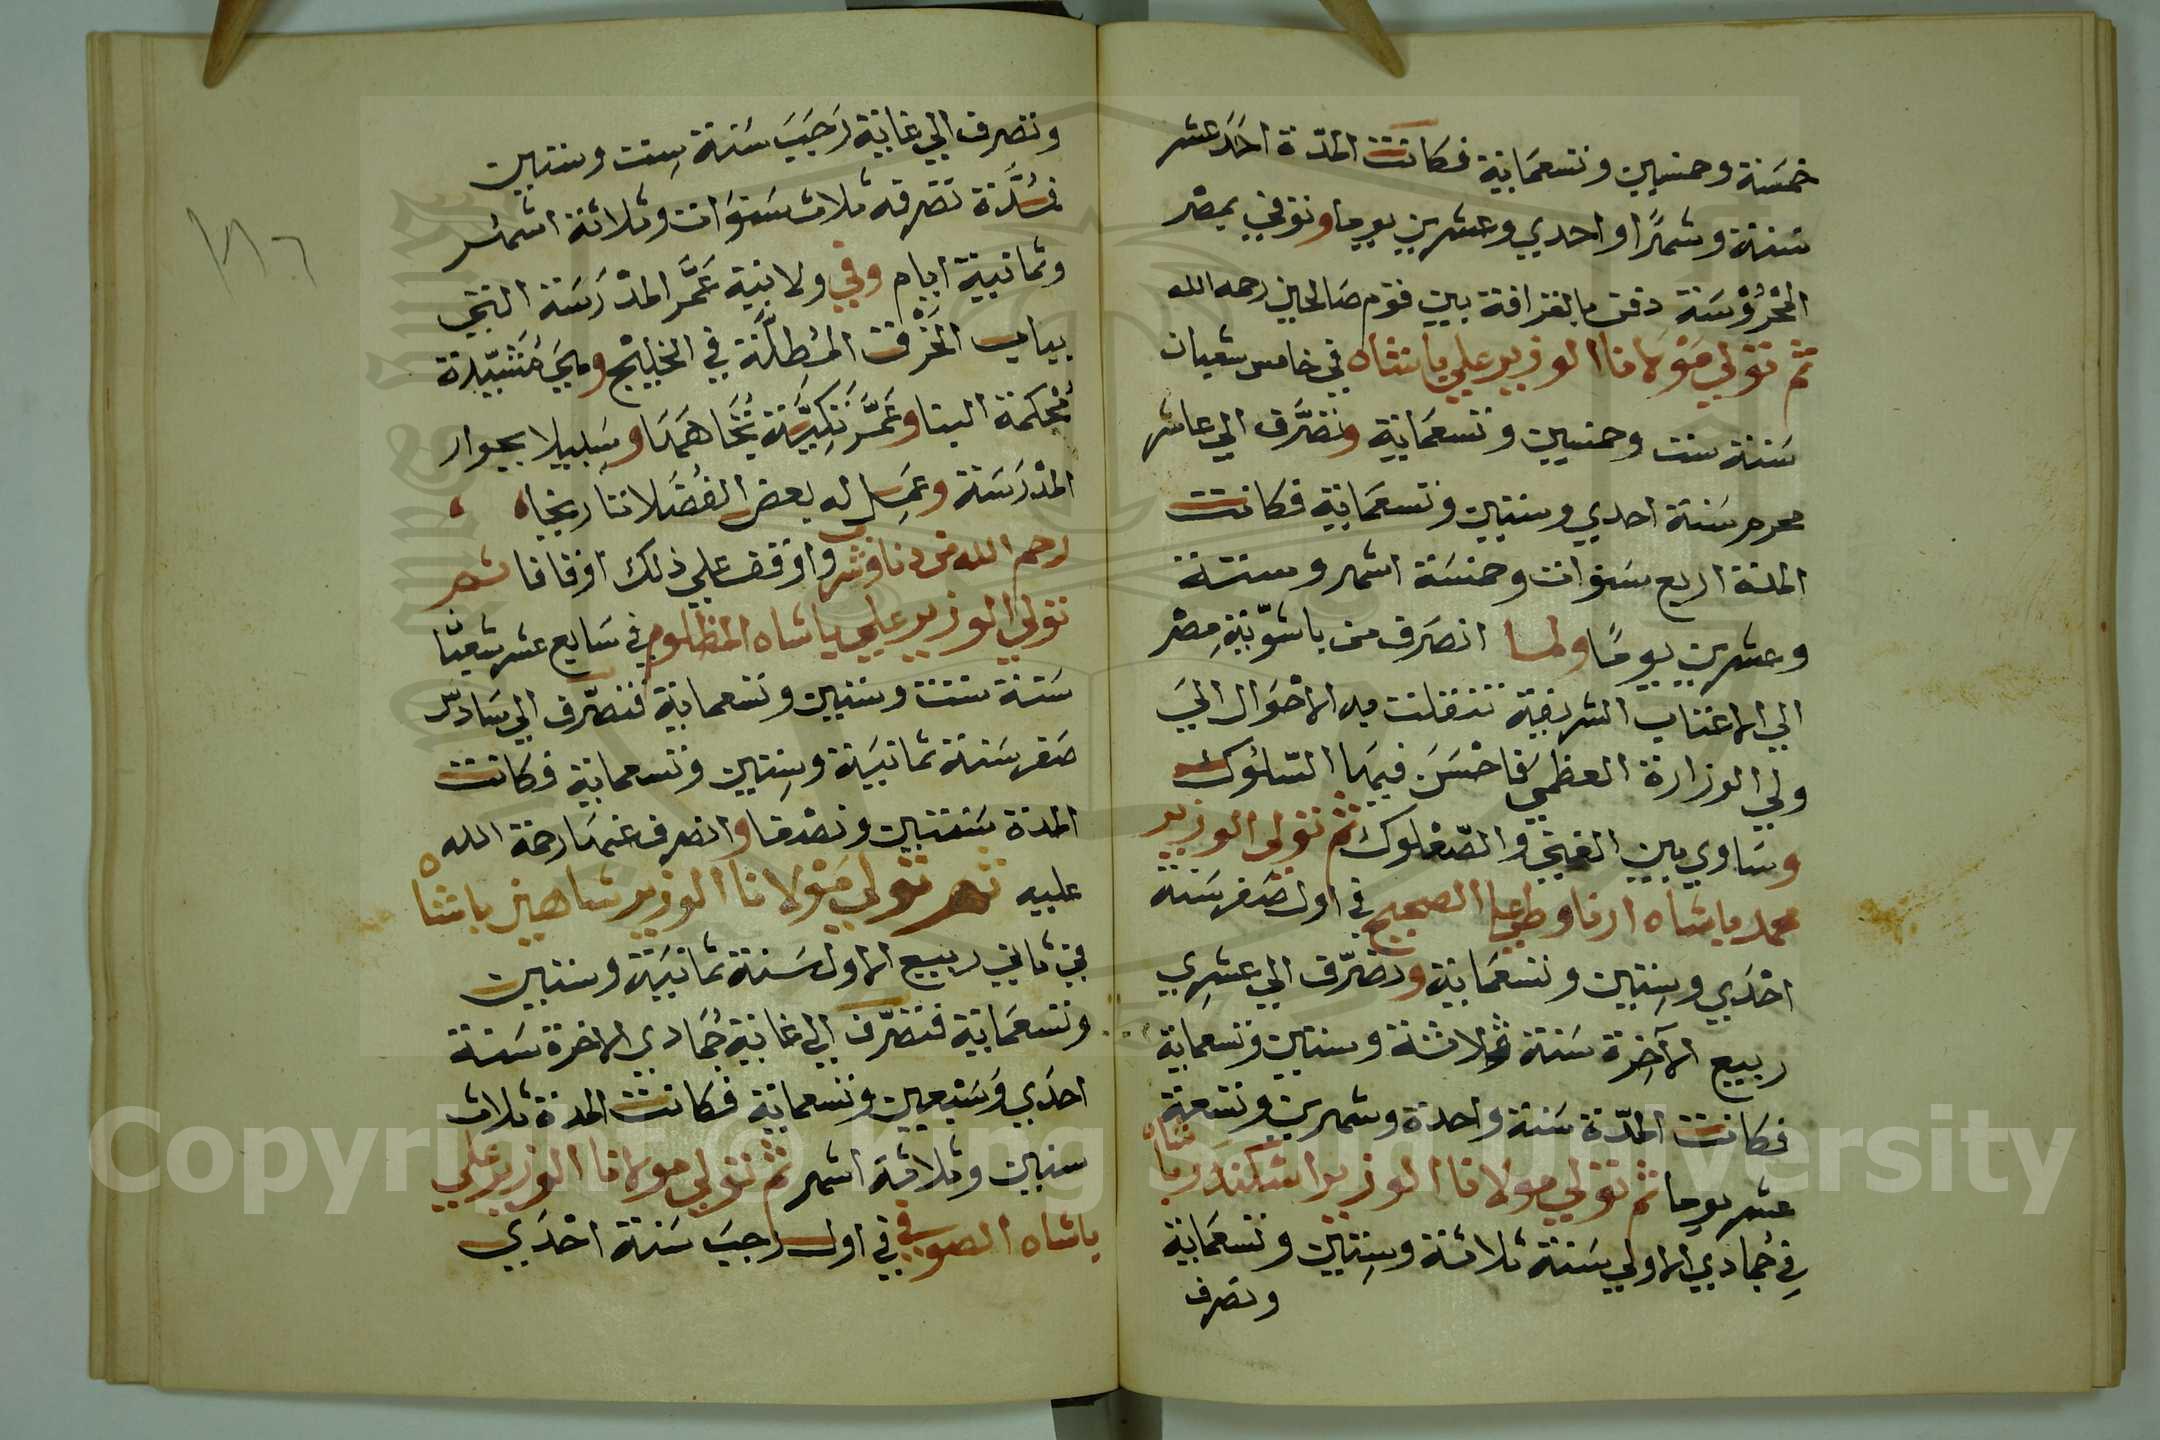 خمسة وخمسين وتسعماية فكانت المدة احد عشر
سنة وشهرًا واحدي وعشرين يوما وتوفي بمصر
المحروسة دفن بالقرافة بين قوم صالحين رحمه الله
ثم تولي مولانا الوزير علي باشاه في خامس شعبان
سنة ست وخمسين وتسعماية وتصرّف الي عاشر
محرم سنة احدي وستين وتسعماية فكانت
المدة اربع سنوات وخمسة اشهر وستة
وعشرين يومًا ولما انصرف من باشوّية مصر
الي الاعتاب الشريفة تنقلت به الاحوال الي
ولي الوزارة العظمي فاحسن فيها السّلوك
وساوي بين الغني والصّعلوك ثم تولي الوزير
محمد باشاه ارناوطي الصحيح في اول صفر سنة
احدي وستين وتسعماية وتصرّف الي عشري
ربيع الآخرة سنة ثلاثة وستين وتسعماية
فكانت المدّة سنة واحدة وشهرين وتسعة
عشر يوما ثم تولي مولانا الوزير اسكندر باشاه
في جمادي الاولي سنة ثلاثة وستين وتسعماية
وتصرف
وتصرف الي غاية رجب سنة ست وستين
فمدّة تصرفه ثلاث سنوات وثلاثة اشهر
وثمانية ايام وفي ولايته عمّر المدرسة التي
بباب الخرق المطلّة في الخليج وهي مشيّدة
محكمة البنا وعمّر تكيّة تجاهها وسبيلا بجوار
المدرسة وعمل له بعض الفضلا تاريخاه
رحم الله من دنا وشرب واوقف علي ذلك اوقافا ثم
تولي الوزير علي باشاه المظلوم في سابع عشر شعبان
سنة ستة وستين وتسعماية فتصرّف الي سادس
صفر سنة ثمانية وستين وتسعماية فكانت
المدة سنتين ونصفا وانصرف عنها رحمة الله
عليه ثم تولي مولانا الوزير شاهين باشاه
في ثاني ربيع الاول سنة ثمانية وستين
وتسعماية فتصرّف الي غاية جمادي الاخرة سنة
احدي وسبعين وتسعماية فكانت المدة ثلاث
سنين وثلاثة اشهر ثم تولي مولانا الوزير علي
باشاه الصوفي في اول رجب سنة احدي
Copyright © King Saud University